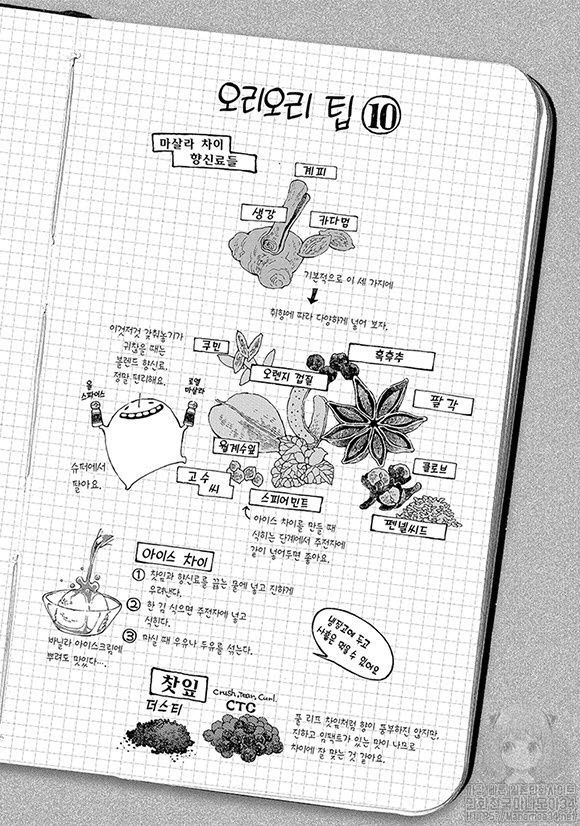 오리오리 팁 ⑩
마살라 차이
향신료들
계피
생강
카다멈
기본적으로 이 세 가지에
취향에 따라 다양하게 넣어 보자.
이것저것 갖춰놓기가
귀찮을 때는
블렌드 향신료.
정말 편리해요.
올
스파이스
로열
마살라
슈퍼에서
팔아요.
쿠민
오렌지 껍질
흑후추
팔각
월계수잎
고수
씨
스피어민트
클로브
펜넬씨드
아이스 차이를 만들 때
식히는 단계에서 주전자에
같이 넣어두면 좋아요.
아이스 차이
① 찻잎과 향신료를 끓는 물에 넣고 진하게
우려낸다.
② 한 김 식으면 주전자에 넣고
식힌다.
③ 마실 때 우유나 두유를 섞는다.
바닐라 아이스크림에
뿌려도 맛있다….
냉장고에 두고
사흘은 먹을 수 있어요
찻잎
더스티
Crush, Tear, Curl.
CTC
풀 리프 찻잎처럼 향이 풍부하진 않지만,
진하고 임팩트가 있는 맛이 나므로
차이에 잘 맞는 것 같아요.